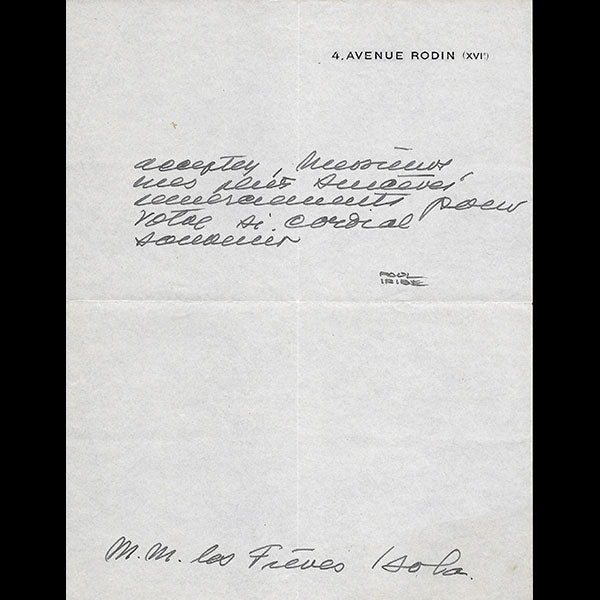 4, AVENUE RODIN (XVIᵉ)
acceptez, Messieurs
mes plus sincères
remerciements pour
votre si cordial
souvenir
PAUL
IRIBE
M.M. les Frères Isola.